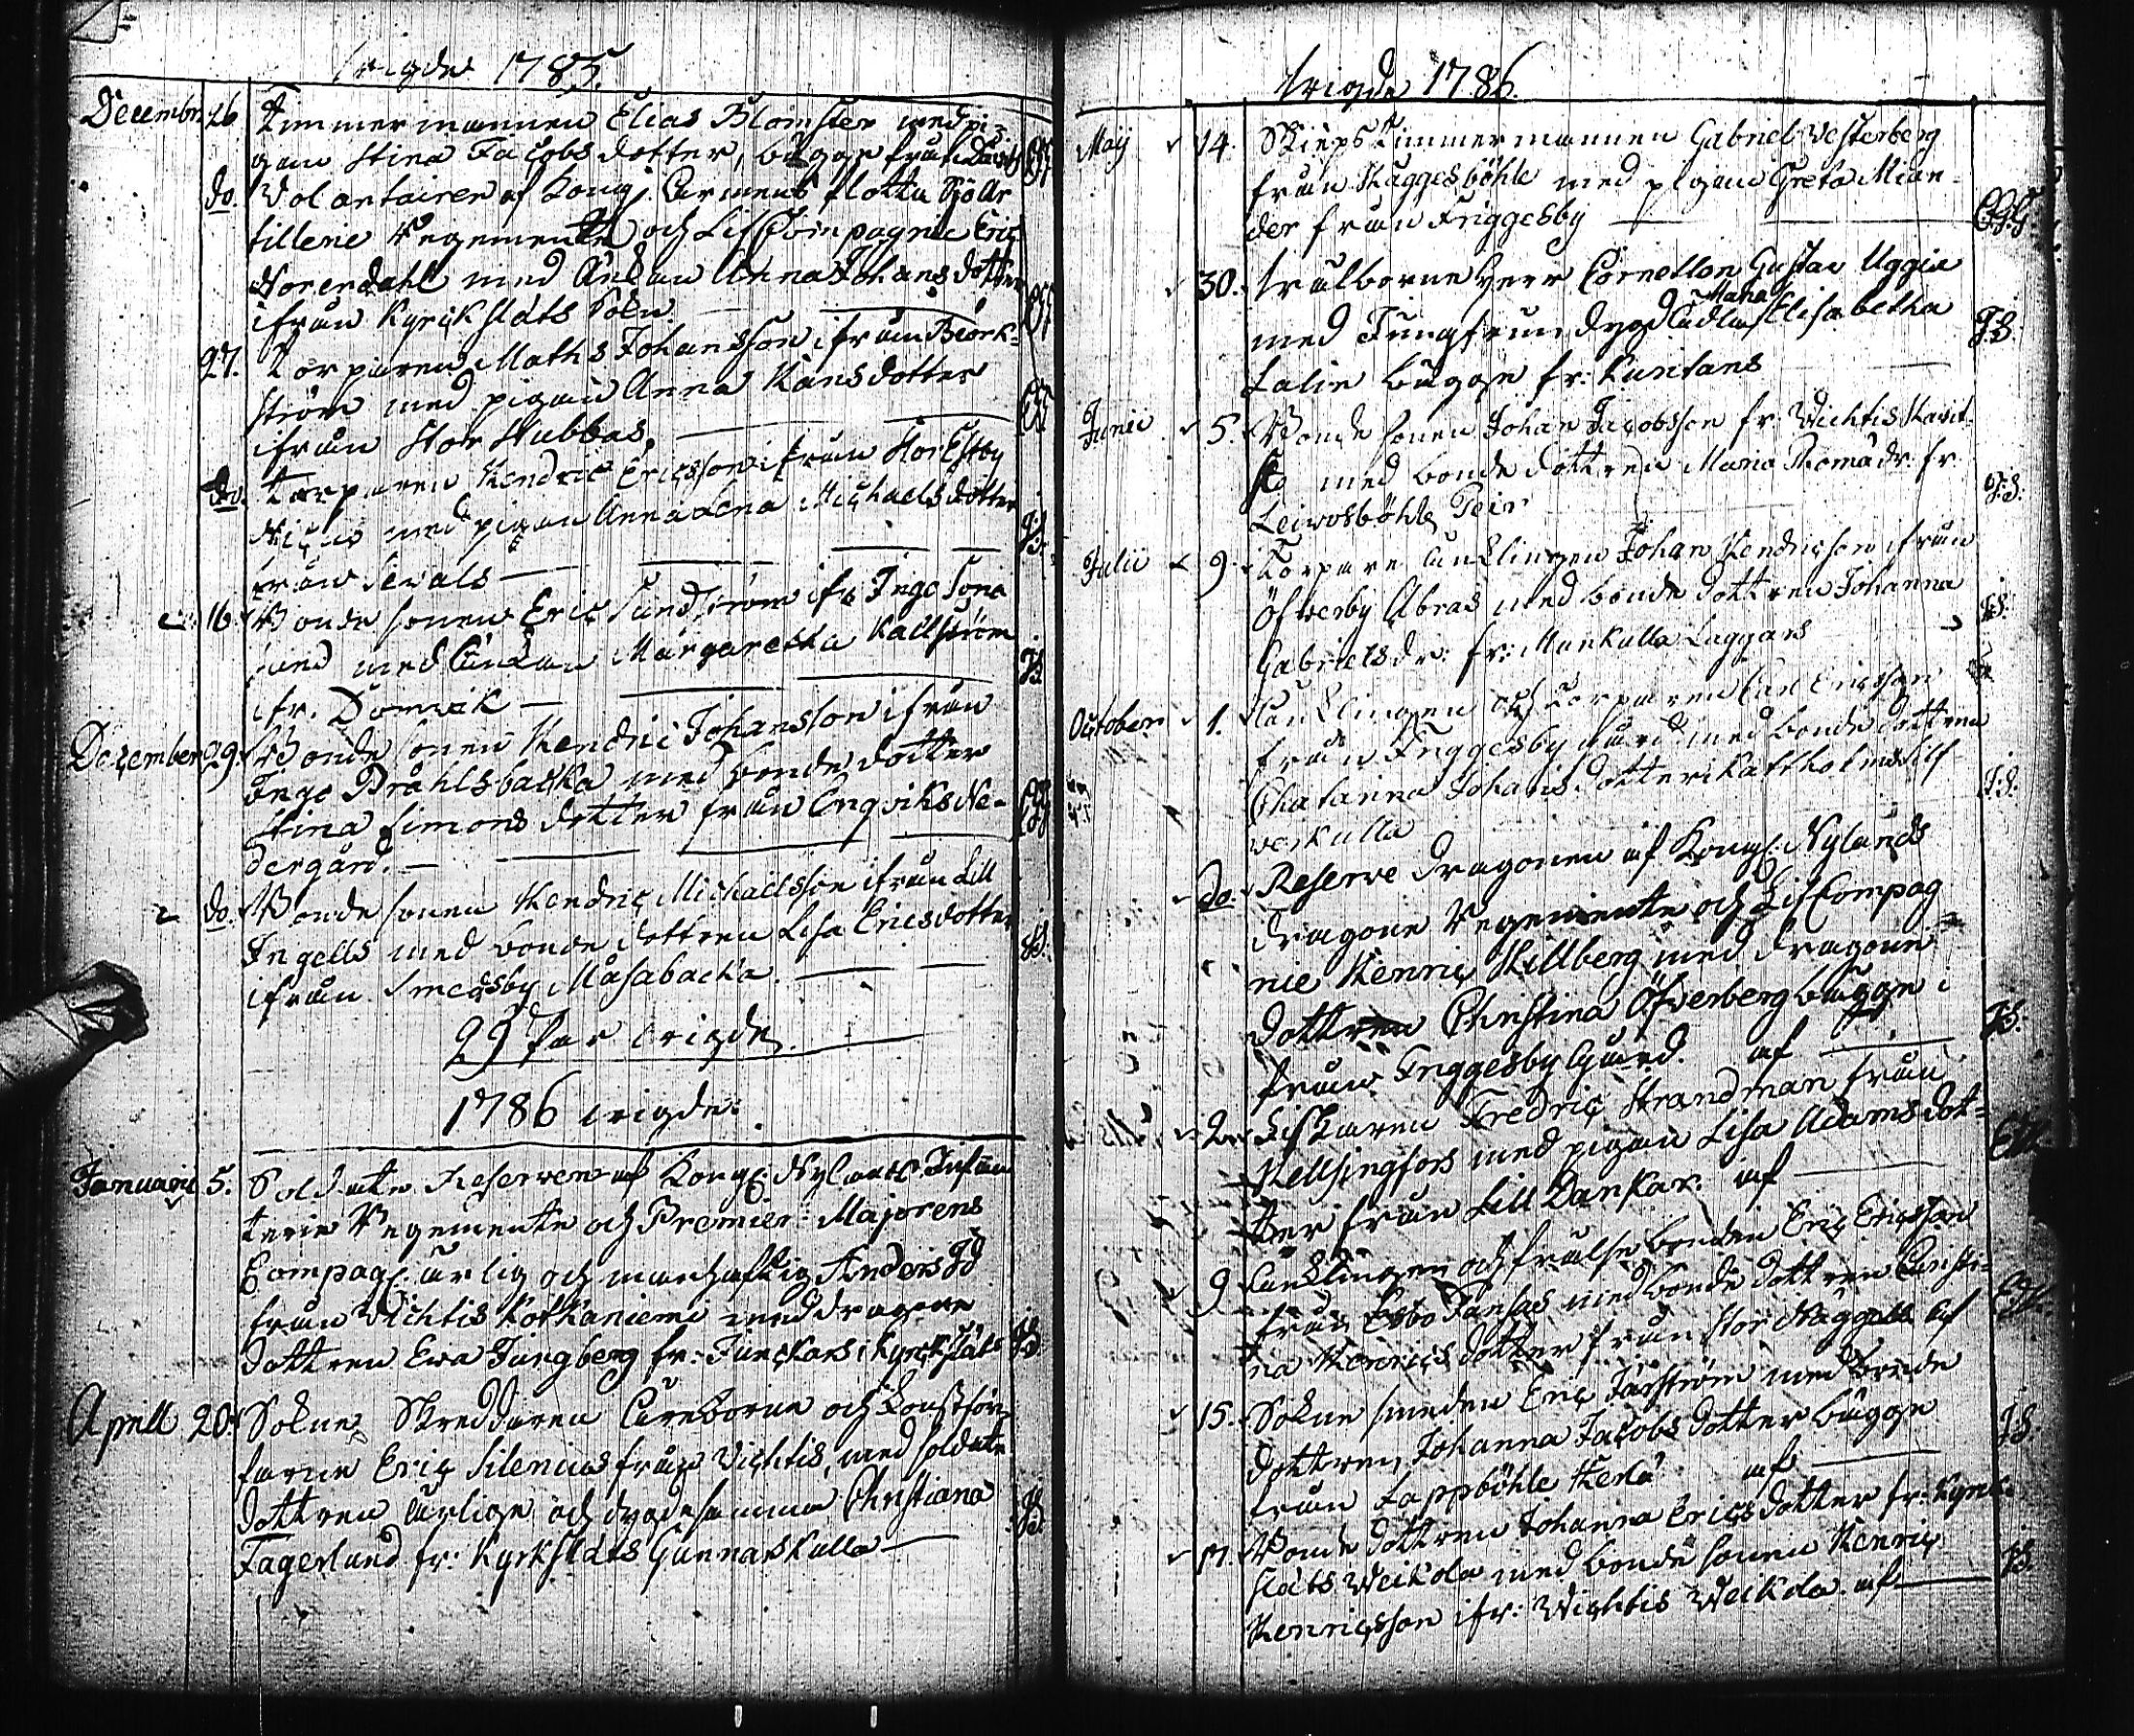 wigde 1785.
Decembr. 26 Timmermannen Elias Blomster med pi-
gan Stina Jacobsdotter, bägge från
do. Volontairen af Kongl. Arméens flotta Sjö Ar
tillerie Regemente och Lif Compagnie Eric
Norendahl med Änkan Anna Johansdotter
ifrån Kyrkslätts Sokn.
27. Torparen Maths Johansson ifrån Biörk-
ström med pigan Anna Hansdotter
ifrån Stor Stubbas,
do. Torparen Hendric Ericsson ifrån Stor Estby
med pigan Anna Lena Michaelsdotter
från Sewals
16. Bonde sonen Eric Sundström ifr. Ingo
med Änkan Margaretha Kallström
ifr. Domwik
December 29. Bonde sonen Hendric Johansson ifrån
Ingo Bråhlsbacka med bonde dotter
Stina Simonsdotter från Engviks Ne-
dergård.
do. Bonde sonen Hendric Michaelsson ifrån Lill
Ingells med bonde dottren Lisa Ericsdotter
ifrån Smedsby Måsabacka.
29 Par wigde.
1786 wigde.
Januarii 5. Soldate Reserven af Kongl. Nylands Infan
terie Regemente och Premier Majorens
Compag. ärlig och manhaftig Anders
från Wichtis Kotkaniemi med dragone
dottren Ewa Jungberg fr: Junckars i Kyrkslätt J.S.
Aprill 20. Sokne Skreddaren Ährborne och Konstför
farne Eric Silenius från Wichtis, med soldate
dottren ärliga och dygdesamma Christiana
Fagerlund fr: Kyrkslätts Gunnarskulla J.S.
wigde 1786.
Maij 14. Skieps Timmermannen Gabriel Westerberg
från Kaggesböhle med pigan Greta Mian-
der från Friggesby
30. Wälborne Herr Cornetten Gustav Uggla
Maria
med Jungfrun dygd Ädla Elisabetha
Lalin bägge fr: Kuritans J.S.
Junii 5. Bonde sonen Johan Jacobsson fr. Wichtis
med bonde dottren Maria Thomædr. fr.
Leiwosböhle Peir J.S.
Julii 9. Torpare Änklingen Johan Hendricson ifrån
Öfwerby Abras med bonde dottren Johanna
Gabrielsdr: fr: Munkulla Laggars J.S.
October 1. Änklingen och Torparen Carl Ericsson
från Friggesby gård med bonde dottren
Chatarina Johansdotter
werkulla J.S.
do. Reserve dragonen af Kongl. Nylands
dragone Regemente och Lif Compag
nie Henric Hillberg med dragone
dottren Christina Öfverberg bägge i
från Friggesby Gård. af J.S.
2. Fiskaren Fredric Strandman från
Hellsingfors med pigan Lisa Adamsdot-
ter från Lill Dankar. af
9 Änklingen och frälse bonden Eric Ericsson
från Esbo Pansas med bonde dottren Christi-
na Henricsdotter från Stor af
15. Sokne smeden Eric Forsström med bonde
dottren Johanna Jacobsdotter bägge
från Lappböhle Herla af J.S.
17. Bonde dottren Johanna Ericsdotter fr: Kyrk-
slätts Weikola med bonde sonen Henric
Henricsson ifr: Wichtis Weikola af J.S.